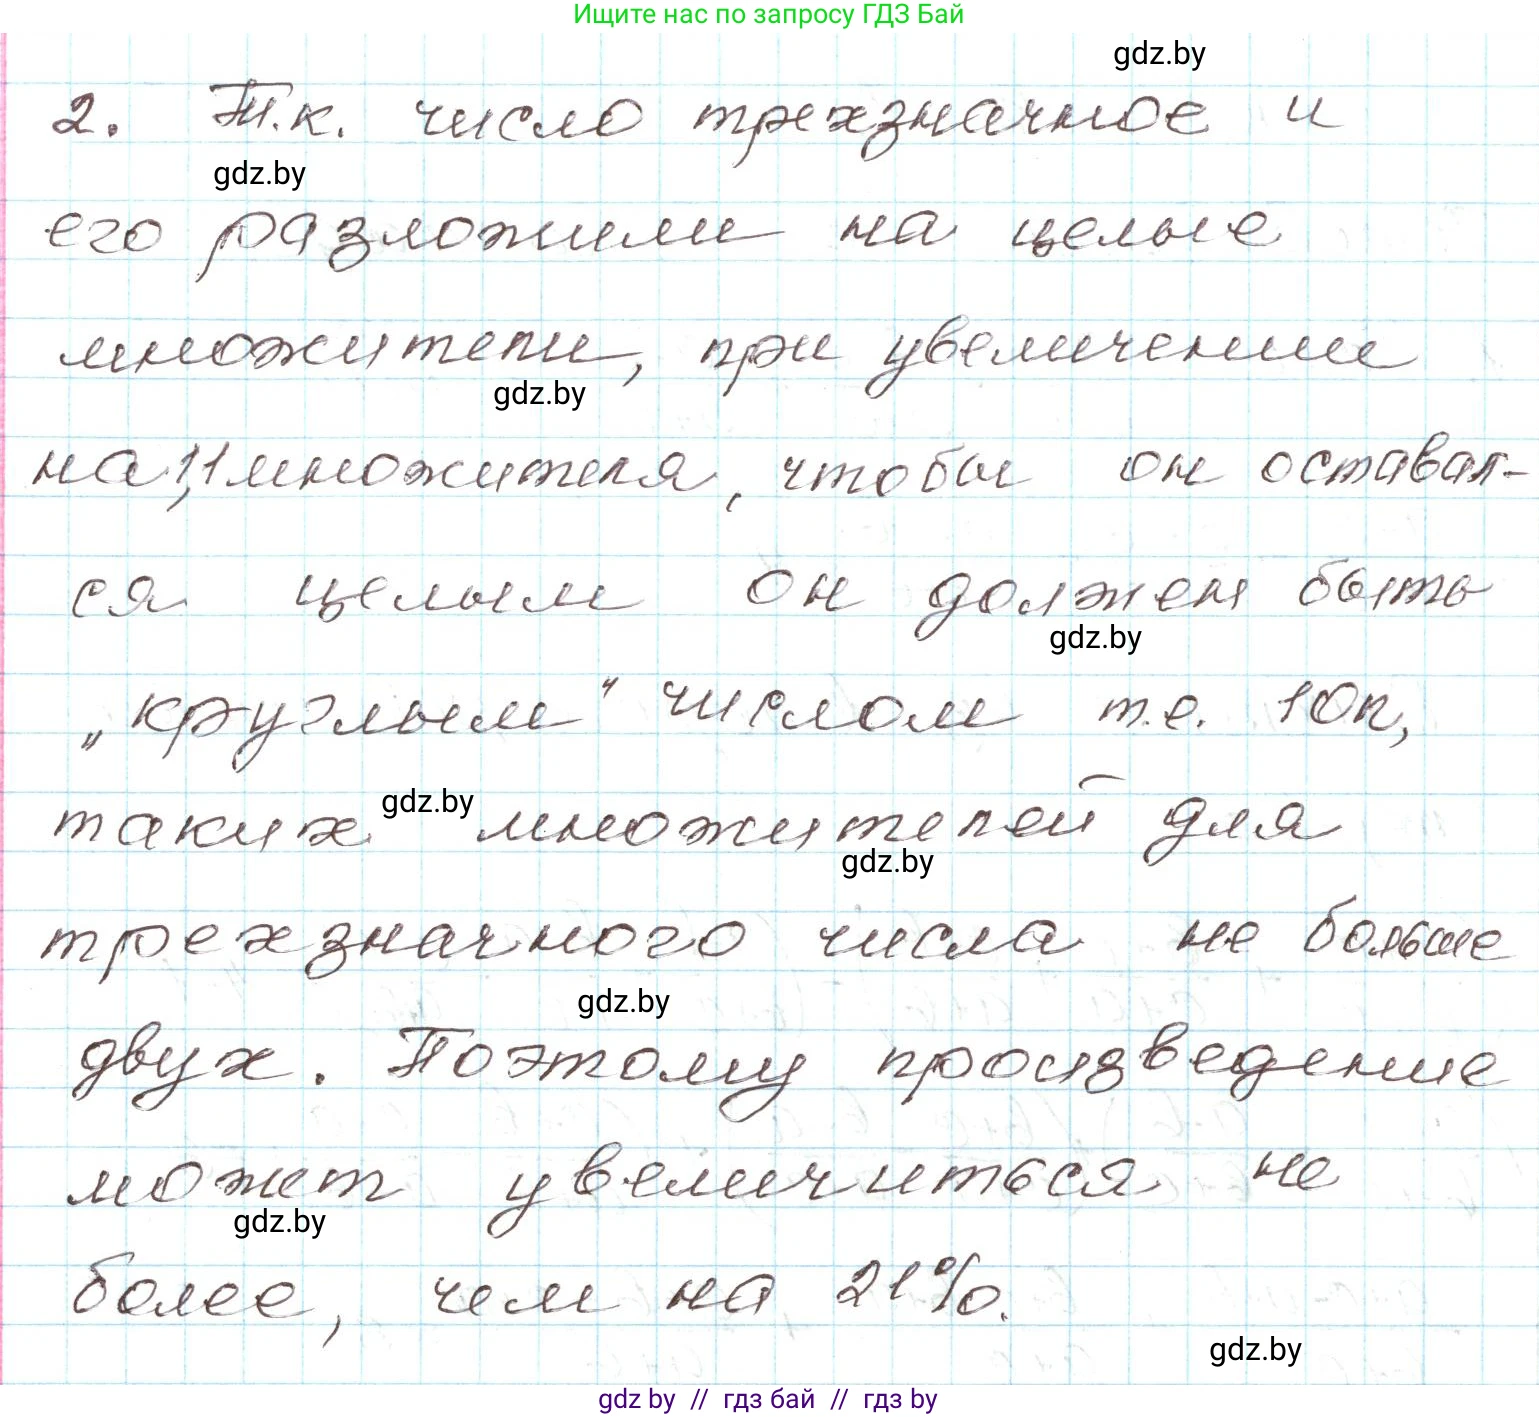 Ищите нас по запросу ГДЗ Бай
gdz.by
2. Т.к. число трехзначное и
gdz.by
его разложили на целые
множители, при увеличении
gdz.by
на 1,1 множителя, чтобы он оставал-
ся целым он должен быть
gdz.by
„круглым“ числом т.е. 10n,
gdz.by
таких множителей для
gdz.by
трехзначного числа не больше
gdz.by
двух. Поэтому произведение
может увеличиться не
gdz.by
более, чем на 21%.
gdz.by
gdz.by // гдз бай // гдз by